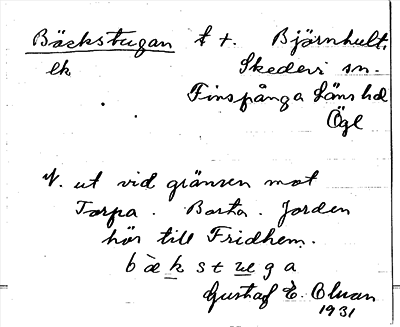 Bäckstugan t t. Björnhult,
lk Skedevi sn.
Finspånga läns hd
Ögl
N. ut vid gränsen mot
Torpa. Borta. Jorden
hör till Fridhem.
b ä k s t u g a
Gustaf E. Olsson
1931